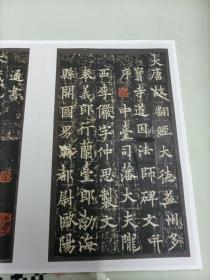 大唐故翻經大德益州多
寶寺道因法師碑文并
序中臺司藩大夫隴
西李儼字仲思製文
奉義郎行蘭臺郎渤海
縣開國男騎都尉歐陽
通書